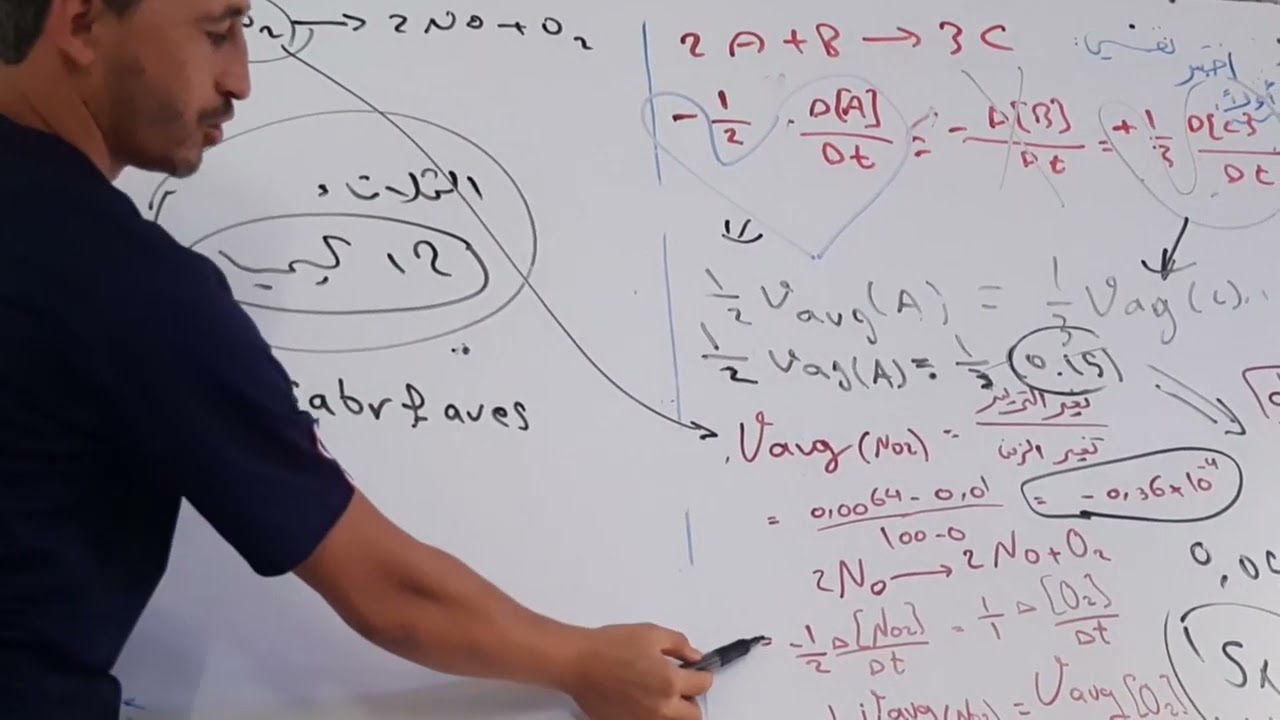 O₂ → 2NO + O₂
الثلاث
12 كيب
abr faves
2A + B → 3C
نفسي:
اختبر
أولاً
- 1/2 . Δ[A]/Δt = - Δ[B]/Δt = + 1/3 Δ[C]/Δt
1/2 Vavg(A) = 1/3 Vag(C)
1/2 Vag(A) = 1/3 0.15
Vavg(NO2) = تغير التركيز / تغير الزمن
= 0,0064 - 0,01 / 100-0 = - 0,36×10⁻⁴
2NO → 2NO + O₂
0,00
= -1/2 Δ[NO2]/Δt = 1/1 Δ[O₂]/Δt
Vavg(NO2) = Vavg[O₂]
5x